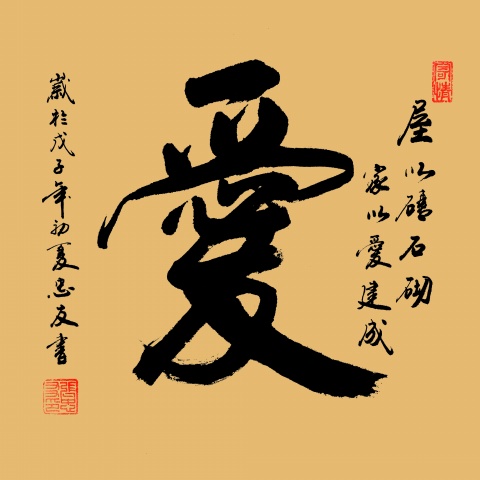 屋以礴石砌
家以愛建成
愛
歲於戊子年初夏忠友書